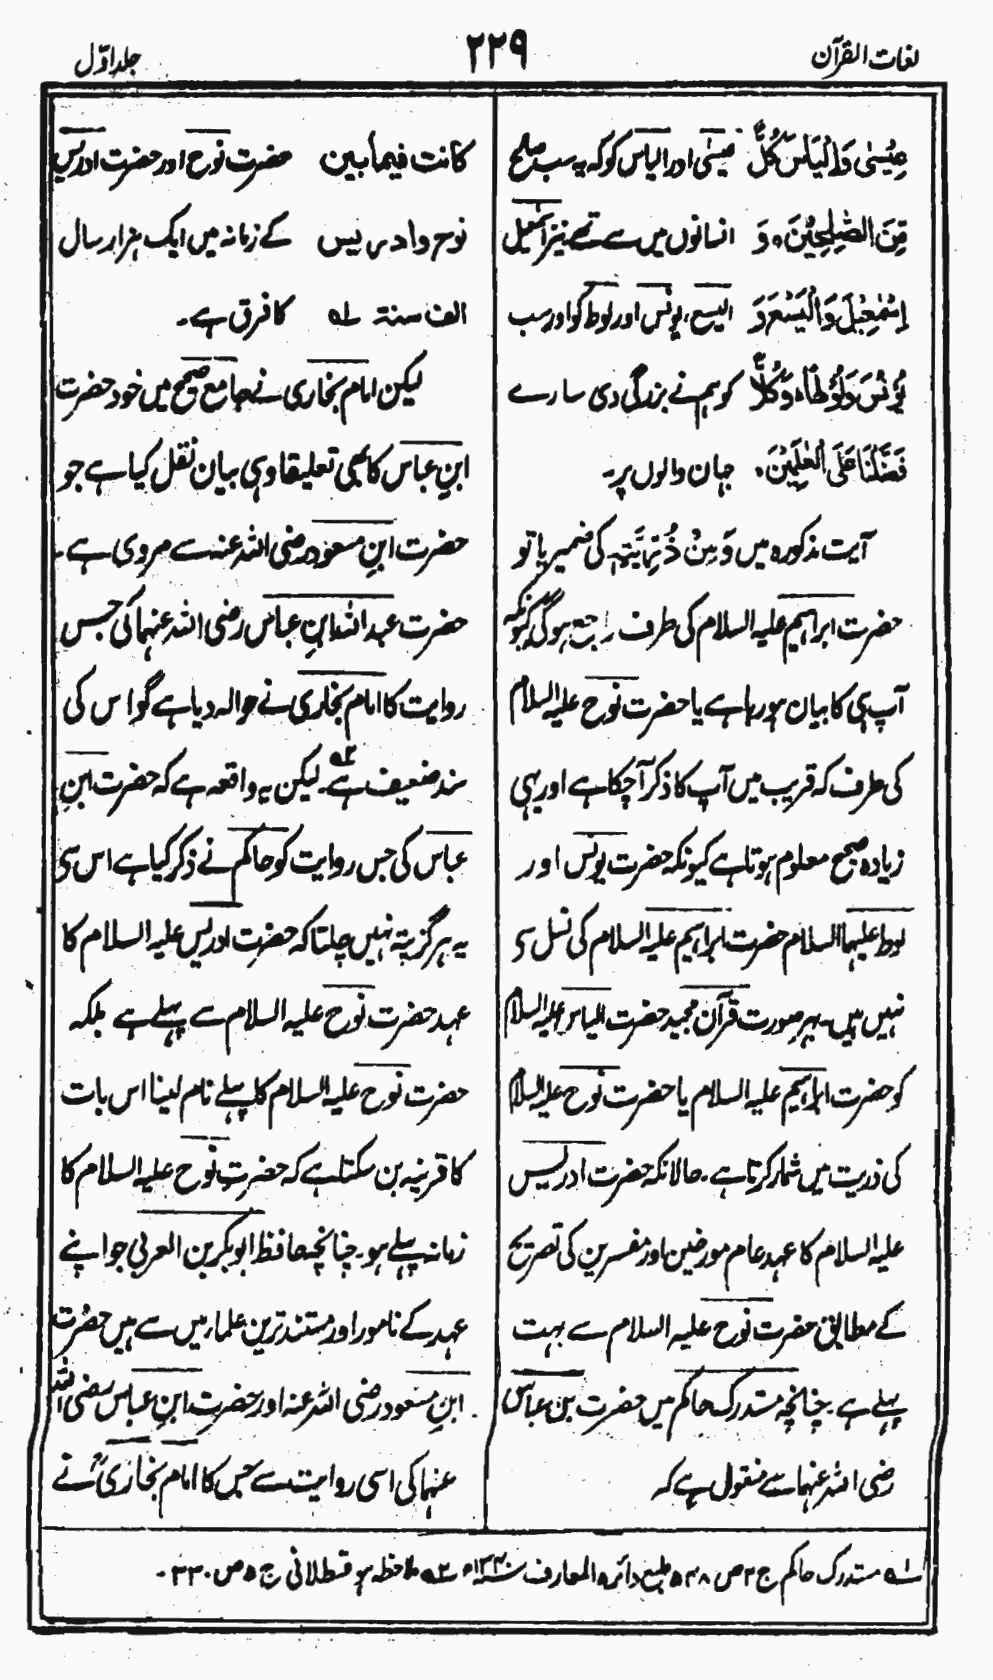 لغات القرآن
۲۲۹
جلد اوّل
عِيْسٰى وَاِلْيَاسَ كُلٌّ عیسٰی اور الیاس کو کہ یہ سب صلح
مِّنَ الصّٰلِحِيْنَ ہ وَ انسانوں میں سے تھے نیز اسمٰعیل
اِسْمٰعِيْلَ وَالْيَسَعَ وَ الیسع، یونس اور لوط کو اور سب
يُوْنُسَ وَلُوْطًا، وَكُلًّا کو ہم نے بزرگی دی سارے
فَضَّلْنَا عَلَى الْعٰلَمِيْنَ ہ جہان والوں پر۔
آیت مذکورہ میں وَمِنْ ذُرِّيَّتِهٖ کی ضمیر یا تو
حضرت ابراہیم علیہ السلام کی طرف راجع ہوگی کیونکہ
آپ ہی کا بیان ہو رہا ہے یا حضرت نوح علیہ السلام
کی طرف کہ قریب میں آپ کا ذکر آچکا ہے اور یہی
زیادہ صحیح معلوم ہوتا ہے کیونکہ حضرت یونس اور
لوط علیہما السلام حضرت ابراہیم علیہ السلام کی نسل سی
نہیں ہیں۔ بہر صورت قرآن مجید حضرت الیاس علیہ السلام
کو حضرت ابراہیم علیہ السلام یا حضرت نوح علیہ السلام
کی ذریت میں شمار کرتا ہے۔ حالانکہ حضرت ادریس
علیہ السلام کا عہد عام مورخین اور مفسرین کی تصریح
کے مطابق حضرت نوح علیہ السلام سے بہت
پہلے ہے۔ چنانچہ مستدرک حاکم میں حضرت بن عباس
رضی اللہ عنہما سے منقول ہے کہ
كانت فيما بين حضرت نوح اور حضرت ادریس
نوح وادريس کے زمانہ میں ایک ہزار سال
الف سنة لہ کا فرق ہے۔
لیکن امام بخاری نے جامع صحیح میں خود حضرت
ابنِ عباس کا بھی تعلیقا وہی بیان نقل کیا ہے جو
حضرت ابنِ مسعود رضی اللہ عنہ سے مروی ہے۔
حضرت عبداللہ ابنِ عباس رضی اللہ عنہما کی جس
روایت کا امام بخاری نے حوالہ دیا ہے گو اس کی
سند ضعیف ہے۔ ۲ہ لیکن یہ واقعہ ہے کہ حضرت ابنِ
عباس کی جس روایت کو حاکم نے ذکر کیا ہے اس سی
یہ ہرگز پتہ نہیں چلتا کہ حضرت ادریس علیہ السلام کا
عہد حضرت نوح علیہ السلام سے پہلے ہے بلکہ
حضرت نوح علیہ السلام کا پہلے نام لینا اس بات
کا قرینہ بن سکتا ہے کہ حضرت نوح علیہ السلام کا
زمانہ پہلے ہو۔ چنانچہ حافظ ابوبکر بن العربی جو اپنے
عہد کے نامور اور مستند ترین علماء میں سے ہیں حضرت
ابنِ مسعود رضی اللہ عنہ اور حضرت ابنِ عباس رضی اللہ
عنہما کی اسی روایت سے جس کا امام بخاریؒ نے
۱ہ مستدرک حاکم ج ۲ ص ۵۴۸ طبع دائرۃ المعارف ۱۳۴۰ھ ۲ہ ملاحظہ ہو قسطلانی ج ۵ ص ۳۳۰۔